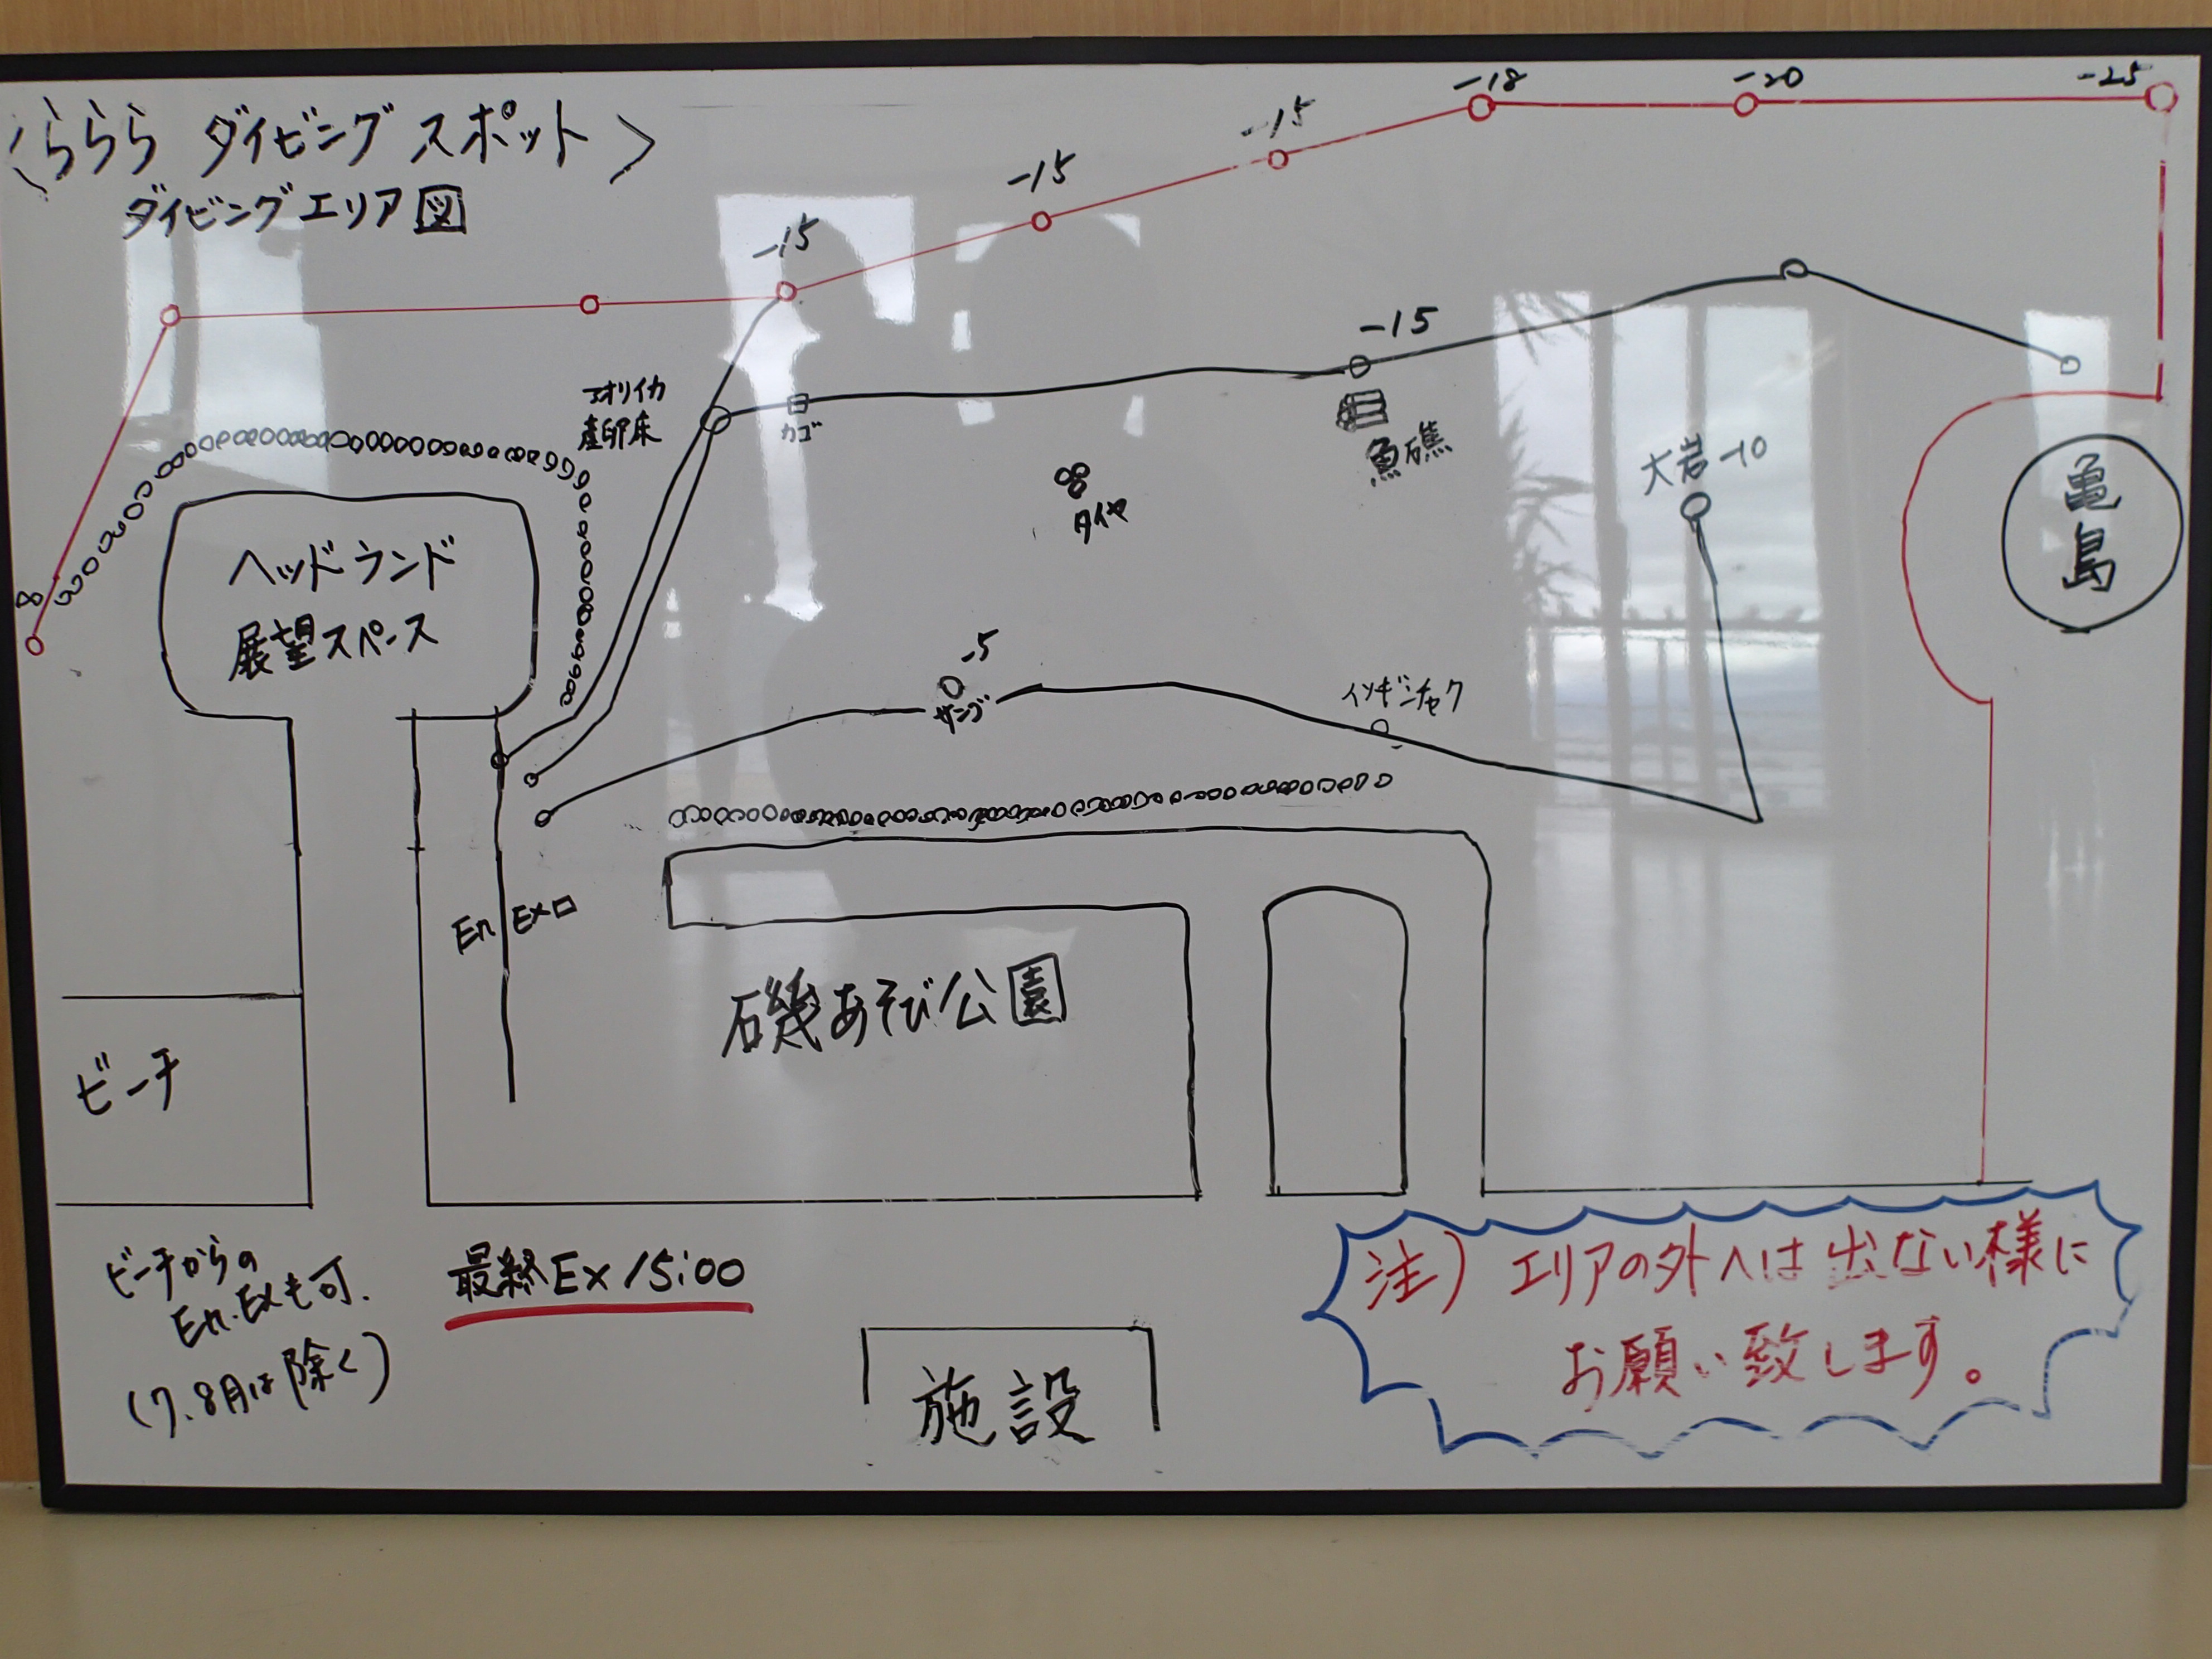 〈ららら ダイビング スポット〉
ダイビングエリア図
-15
-15
-15
-18
-20
-25
アオリイカ
産卵床
カゴ
-15
魚礁
タイヤ
大岩 -10
亀島
ヘッドランド
展望スペース
-5
サンゴ
イソギンチャク
En Ex口
磯あそび公園
ビーチ
ビーチからの
En.Exも可.
(7.8月は除く)
最終Ex 15:00
施設
注) エリアの外へは出ない様に
お願い致します。